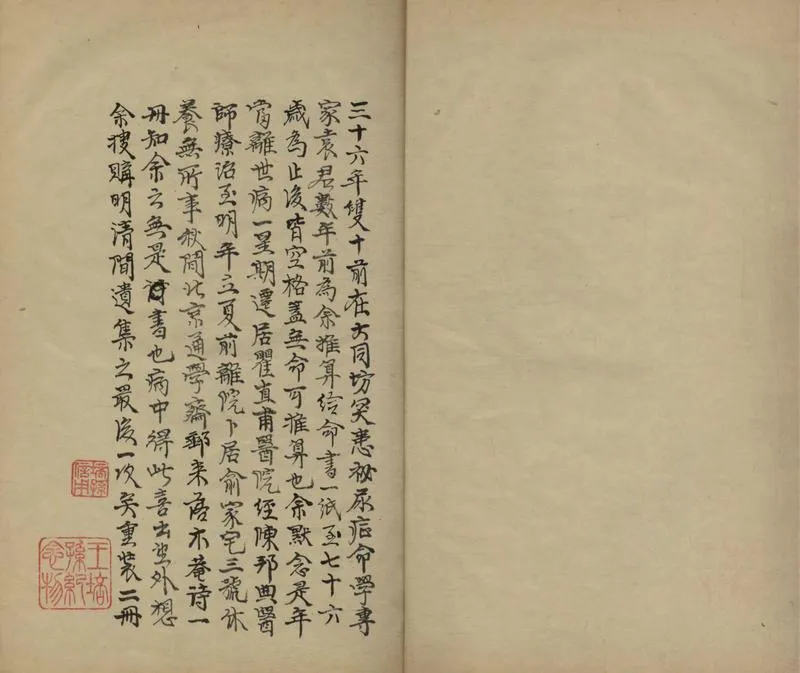 三十六年雙十前在大同坊突患祕尿症命學專
家袁君數年前為余推算給命書一紙至七十六
歲為止後皆空格蓋無命可推算也余默念是年
當離世病一星期遷居瞿直甫醫院經陳邦典醫
師療治至明年立夏前離院卜居俞家宅三號休
養無所事秋間北京通學齋郵來木菴詩一
冊知余云無是書也病中得此喜出望外想
余搜購明清間遺集之最後一次矣重裝二冊
王培
孫紀
念物